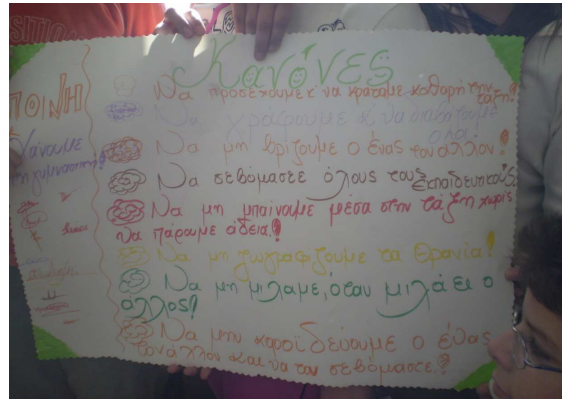 Κανόνες
ΠΟΙΝΗ
Χάνουμε
τη γυμναστική!
Να προσέχουμε κ' να κρατάμε καθαρή την τάξη!
Να γράφουμε κ να διαβάζουμε
όλα!
Να μη βρίζουμε ο ένας τον άλλον!
Να σεβόμαστε όλους τους Εκπαιδευτικούς!
Να μη μπαίνουμε μέσα στην τάξη χωρίς
να πάρουμε άδεια!
Να μη ζωγραφίζουμε τα θρανία!
Να μη μιλάμε, όταν μιλάει ο
άλλος!
Να μην κοροϊδεύουμε ο ένας
τον άλλον και να τον σεβόμαστε!